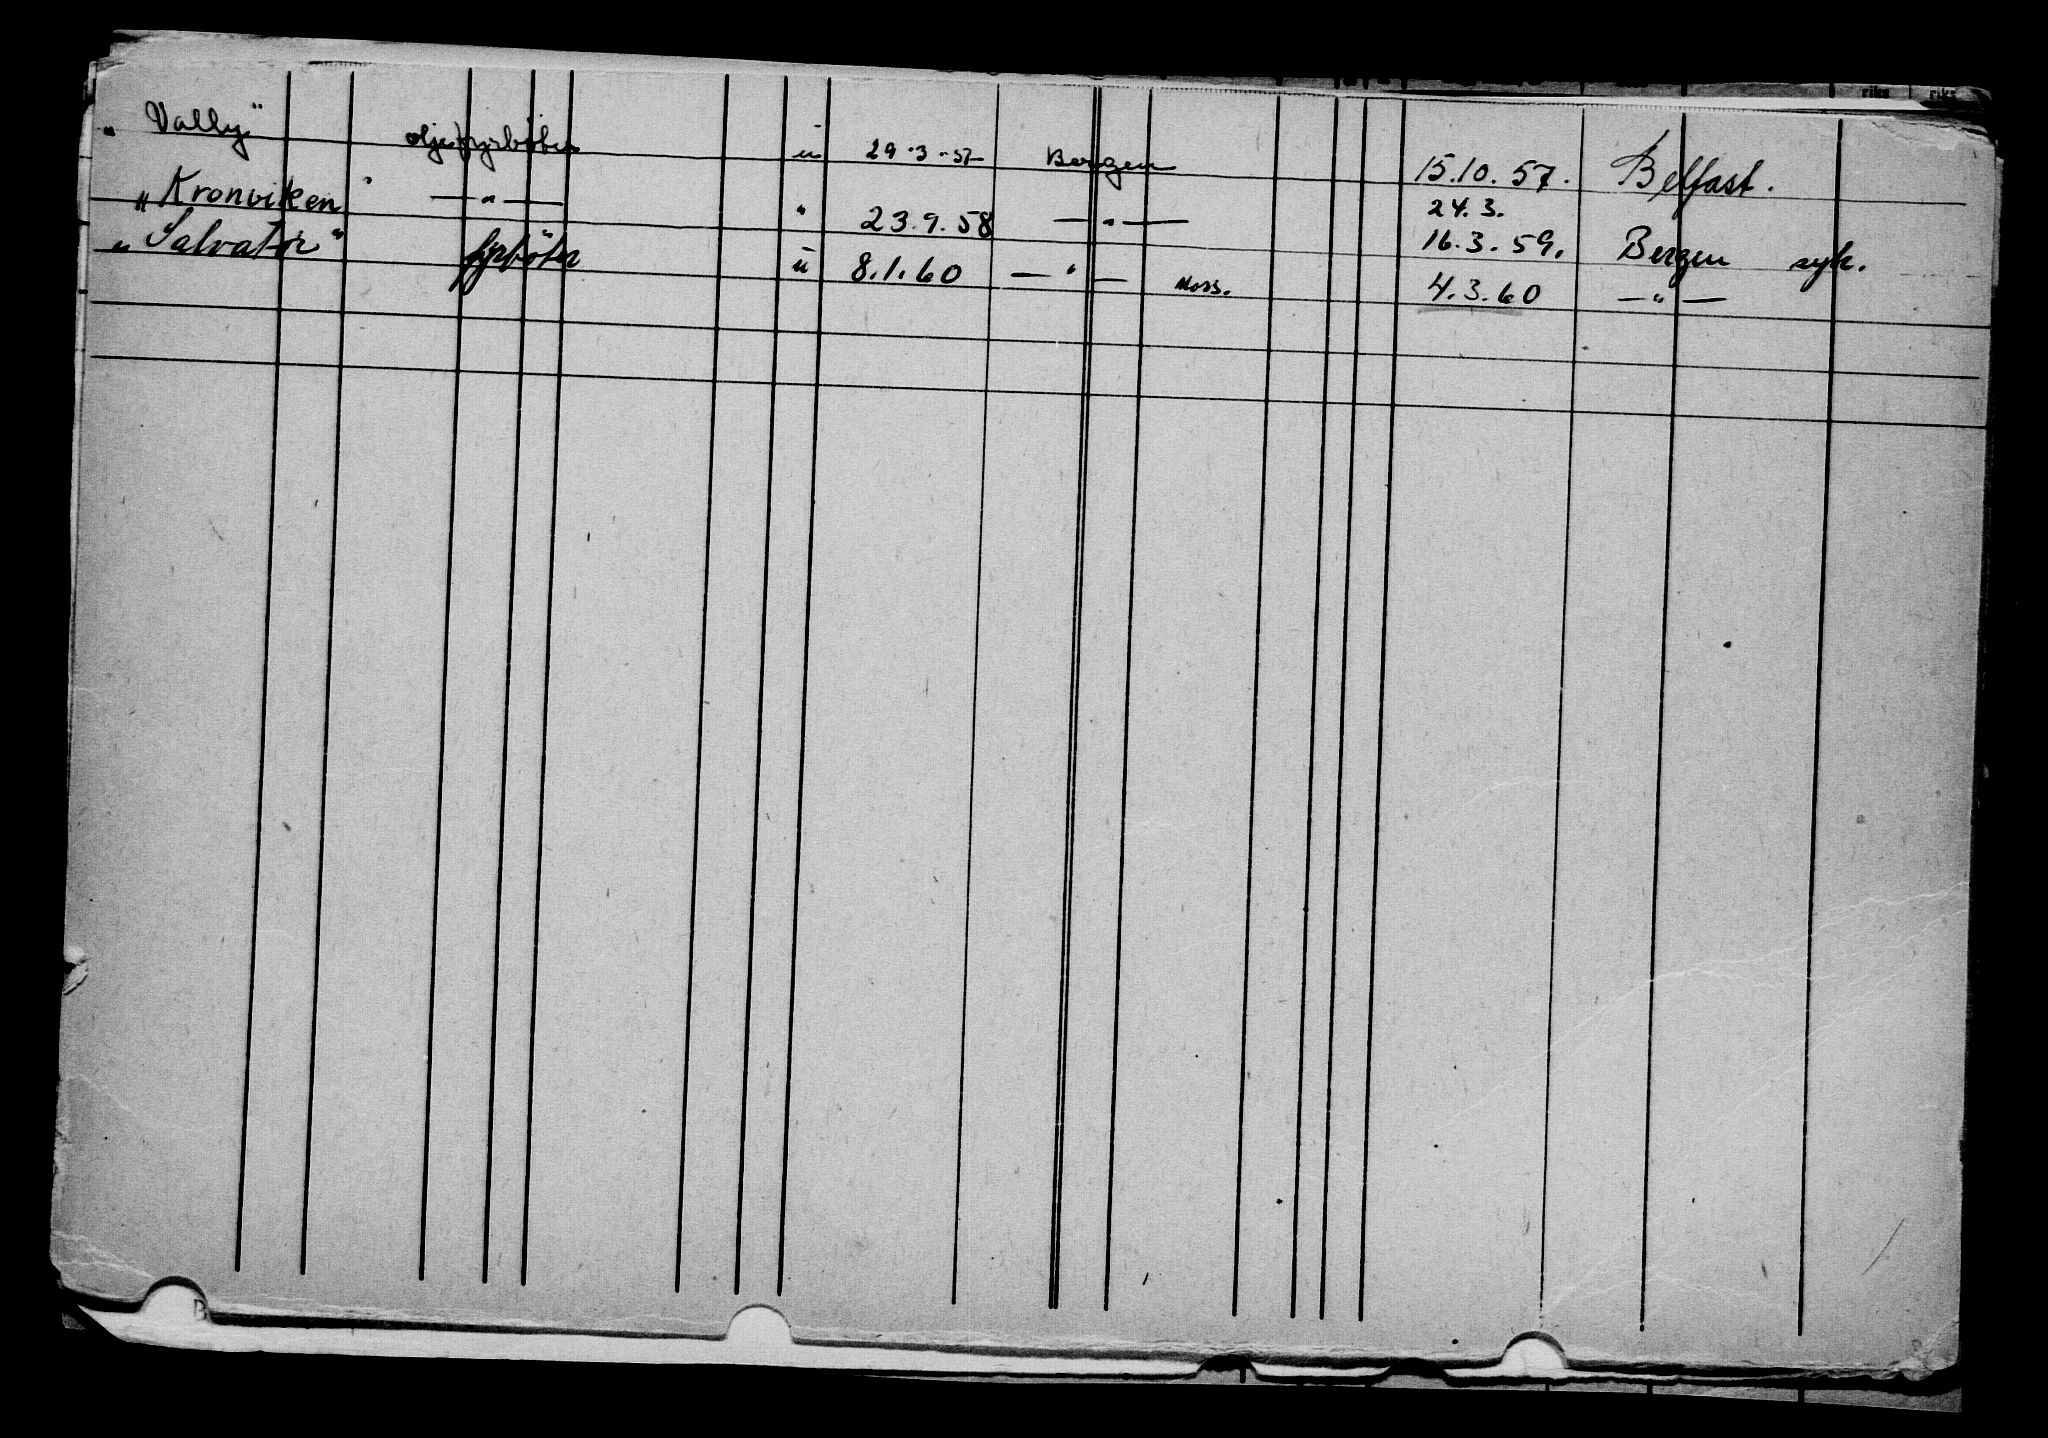 „ Vally" oljefyrböter u 29.3.57 Bergen 15.10.57. Belfast.
„ Kronviken" —„— " 23.9.58 —„— 24.3. 16.3.59. Bergen syk.
„ Salvator" fyrböter u 8.1.60 —„— Moss. 4.3.60 —„—